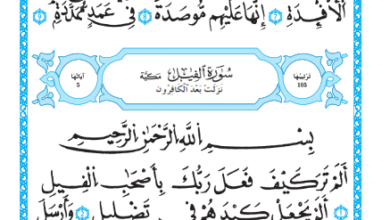 الْأَفْـِٔدَةِ ٧ إِنَّهَا عَلَيْهِم مُّؤْصَدَةٌ ٨ فِي عَمَدٍ مُّمَدَّدَةٍ ٩
ترتيبها 105 سُورَةُ الفِيلِ مَكيّة آياتها 5
نزلت بعد الكافرون
بِسْمِ اللَّهِ الرَّحْمَٰنِ الرَّحِيمِ
أَلَمْ تَرَ كَيْفَ فَعَلَ رَبُّكَ بِأَصْحَابِ الْفِيلِ
١ أَلَمْ يَجْعَلْ كَيْدَهُمْ فِي تَضْلِيلٍ ٢ وَأَرْسَلَ